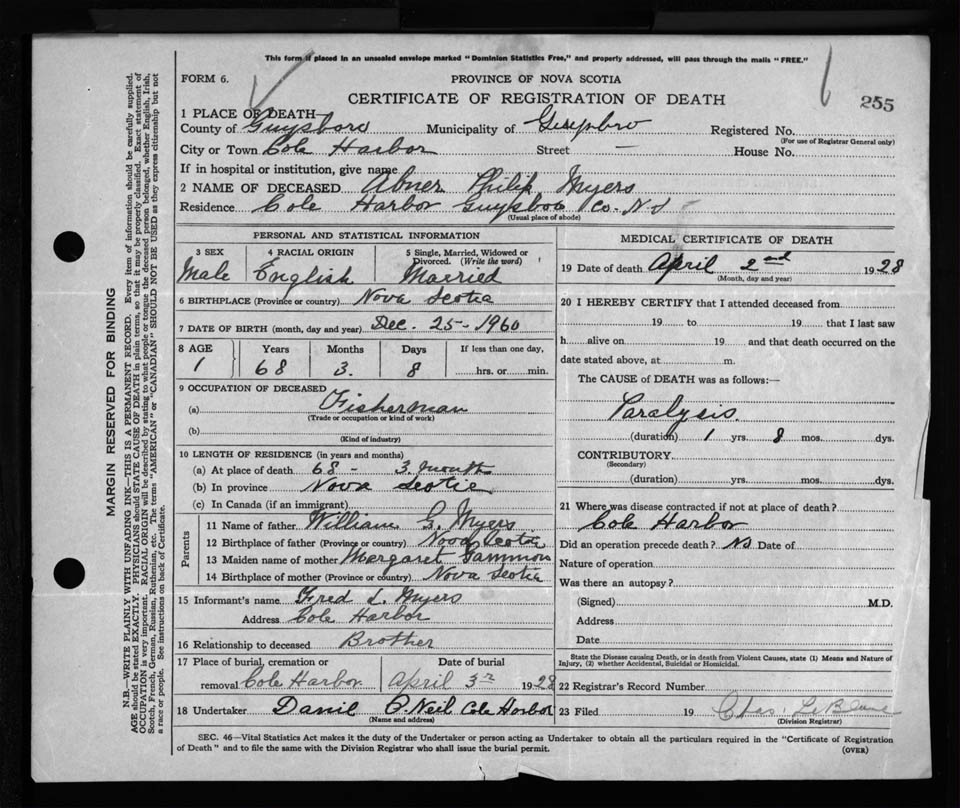 This form if placed in an unsealed envelope marked "Dominion Statistics Free," and properly addressed, will pass through the mails "FREE."
FORM 6.
PROVINCE OF NOVA SCOTIA
CERTIFICATE OF REGISTRATION OF DEATH
255
1 PLACE OF DEATH—
County of Guysboro Municipality of Guysbro Registered No.
(For use of Registrar General only)
City or Town Cole Harbor Street — House No.
If in hospital or institution, give name
2 NAME OF DECEASED Abner Philip Myers
Residence Cole Harbor Guysboro Co. N.S
(Usual place of abode)
PERSONAL AND STATISTICAL INFORMATION
3 SEX 4 RACIAL ORIGIN 5 Single, Married, Widowed or Divorced. (Write the word)
Male English Married
6 BIRTHPLACE (Province or country) Nova Scotia
7 DATE OF BIRTH (month, day and year) Dec. 25 - 1960
8 AGE Years Months Days If less than one day,
1 68 3. 8 hrs. or min.
9 OCCUPATION OF DECEASED
(a) Fisherman
(Trade or occupation or kind of work)
(b)
(Kind of industry)
10 LENGTH OF RESIDENCE (in years and months)
(a) At place of death 68 - 3 month
(b) In province Nova Scotia
(c) In Canada (if an immigrant)
Parents
11 Name of father William G. Myers
12 Birthplace of father (Province or country) Nova Scotia
13 Maiden name of mother Margaret Gammon
14 Birthplace of mother (Province or country) Nova Scotia
15 Informant's name Fred L. Myers
Address Cole Harbor
16 Relationship to deceased Brother
17 Place of burial, cremation or Date of burial
removal Cole Harbor April 3rd 1928
18 Undertaker Danil O. Neil Cole Harbor
(Name and address)
MEDICAL CERTIFICATE OF DEATH
19 Date of death April 2nd 1928
(Month, day and year)
20 I HEREBY CERTIFY that I attended deceased from
19 to 19 that I last saw
h alive on 19 and that death occurred on the
date stated above, at m.
The CAUSE of DEATH was as follows:—
Paralysis.
(duration) 1 yrs. 8 mos. dys.
CONTRIBUTORY
(Secondary)
(duration) yrs. mos. dys.
21 Where was disease contracted if not at place of death?
Cole Harbor
Did an operation precede death? No Date of
Nature of operation
Was there an autopsy?
(Signed) M.D.
Address
Date
State the Disease causing Death, or in death from Violent Causes, state (1) Means and Nature of
Injury, (2) whether Accidental, Suicidal or Homicidal.
22 Registrar's Record Number
23 Filed 19 Chas. LeBlanc
(Division Registrar)
SEC. 46—Vital Statistics Act makes it the duty of the Undertaker or person acting as Undertaker to obtain all the particulars required in the "Certificate of Registration
of Death" and to file the same with the Division Registrar who shall issue the burial permit.
(OVER)
MARGIN RESERVED FOR BINDING
N.B.—WRITE PLAINLY WITH UNFADING INK—THIS IS A PERMANENT RECORD. Every item of information should be carefully supplied.
AGE should be stated EXACTLY. PHYSICIANS should STATE CAUSE OF DEATH in plain terms, so that it may be properly classified. Exact statement of
OCCUPATION is very important. RACIAL ORIGIN will be described by stating to what people or tongue the deceased person belonged, whether English, Irish,
Scotch, French, German, Russian, Ruthenian, etc. The terms "AMERICAN" or "CANADIAN" SHOULD NOT BE USED as they express citizenship but not
a race or people. See instructions on back of Certificate.